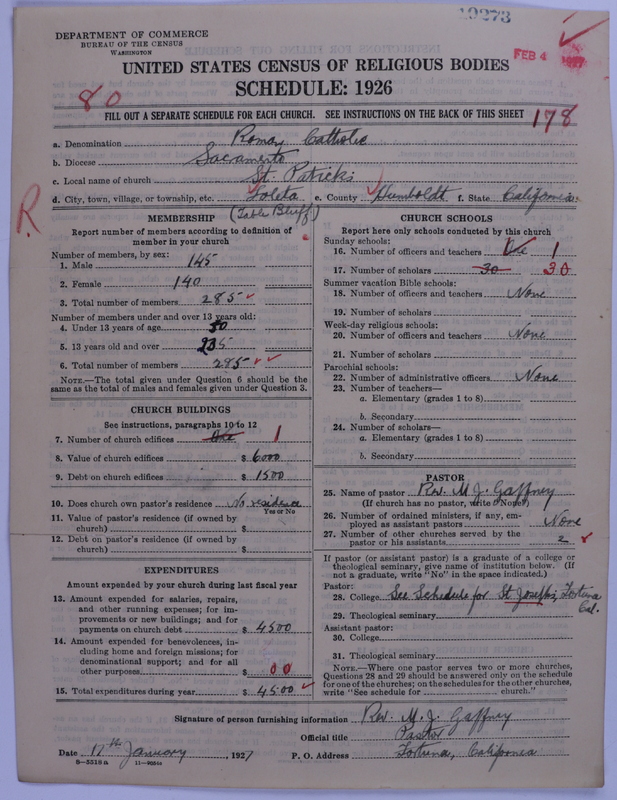 19273
DEPARTMENT OF COMMERCE
BUREAU OF THE CENSUS
WASHINGTON
FEB 4 1927
UNITED STATES CENSUS OF RELIGIOUS BODIES
SCHEDULE: 1926
80
FILL OUT A SEPARATE SCHEDULE FOR EACH CHURCH. SEE INSTRUCTIONS ON THE BACK OF THIS SHEET
178
a. Denomination Roman Catholic
b. Diocese Sacramento
c. Local name of church St. Patricks
d. City, town, village, or township, etc. Loleta e. County Humboldt f. State California
(Table Bluff)
R
MEMBERSHIP
Report number of members according to definition of
member in your church
Number of members, by sex:
1. Male 145
2. Female 140
3. Total number of members 285
Number of members under and over 13 years old:
4. Under 13 years of age 50
5. 13 years old and over 235
6. Total number of members 285
NOTE.—The total given under Question 6 should be the
same as the total of males and females given under Question 3.
CHURCH BUILDINGS
See instructions, paragraphs 10 to 12
7. Number of church edifices One 1
8. Value of church edifices $ 6000
9. Debt on church edifices $ 1500
10. Does church own pastor's residence No residence
Yes or No
11. Value of pastor's residence (if owned by
church) $
12. Debt on pastor's residence (if owned by
church) $
EXPENDITURES
Amount expended by your church during last fiscal year
13. Amount expended for salaries, repairs,
and other running expenses; for im-
provements or new buildings; and for
payments on church debt $ 4500
14. Amount expended for benevolences, in-
cluding home and foreign missions; for
denominational support; and for all
other purposes $ 00
15. Total expenditures during year $ 4500
CHURCH SCHOOLS
Report here only schools conducted by this church
Sunday schools:
16. Number of officers and teachers One 1
17. Number of scholars 30 30
Summer vacation Bible schools:
18. Number of officers and teachers None
19. Number of scholars
Week-day religious schools:
20. Number of officers and teachers None
21. Number of scholars
Parochial schools:
22. Number of administrative officers None
23. Number of teachers—
a. Elementary (grades 1 to 8)
b. Secondary
24. Number of scholars—
a. Elementary (grades 1 to 8)
b. Secondary
PASTOR
25. Name of pastor Rev. M. J. Gaffney
(If church has no pastor, write "None")
26. Number of ordained ministers, if any, em-
ployed as assistant pastors None
27. Number of other churches served by the
pastor or his assistants 2
If pastor (or assistant pastor) is a graduate of a college or
theological seminary, give name of institution below. (If
not a graduate, write "No" in the space indicated.)
Pastor:
28. College See Schedule for St Josephs, Fortuna
Cal.
29. Theological seminary
Assistant pastor:
30. College
31. Theological seminary
NOTE.—Where one pastor serves two or more churches,
Questions 28 and 29 should be answered only on the schedule
for one of the churches; on the schedules for the other churches,
write "See schedule for church."
Signature of person furnishing information Rev. M. J. Gaffney
Official title Pastor
Date 17th January, 1927 P. O. Address Fortuna, California
8—5518 a 11—90544